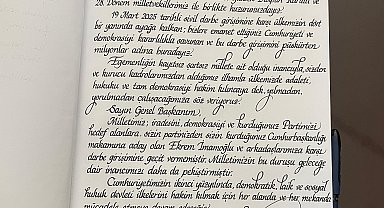 28. Dönem milletvekillerimiz ile birlikte huzurunuzdayız.
19 Mart 2025 tarihli sivil darbe girişimine karşı ülkemizin dört
bir yanında ayağa kalkan; bizlere emanet ettiğiniz Cumhuriyeti ve
demokrasiyi kararlılıkla savunan ve bu darbe girişimini püskürten
milyonlar adına buradayız.
Egemenliğin kayıtsız şartsız millete ait olduğu inancıyla, sizden
ve kurucu kadrolarımızdan aldığımız ilhamla ülkemizde adaleti,
hukuku ve tam demokrasiyi hakim kılıncaya dek, yılmadan,
yorulmadan çalışacağımıza söz veriyoruz.
Sayın Genel Başkanım,
Milletimiz; iradesini, demokrasiyi ve kurduğunuz Partimizi
hedef alanlara; sizin partinizden sizin kurduğunuz Cumhurbaşkanlığı
makamına aday olan Ekrem İmamoğlu ve arkadaşlarımıza karşı
darbe girişimine geçit vermemiştir. Milletimizin bu duruşu geleceğe
dair inancımızı daha da pekiştirmiştir.
Cumhuriyetimizin ikinci yüzyılında, demokratik, laik ve sosyal
hukuk devleti ilkelerini hakim kılmak için her alanda ve her mekanda
mücadele etmeye devam edeceğiz.